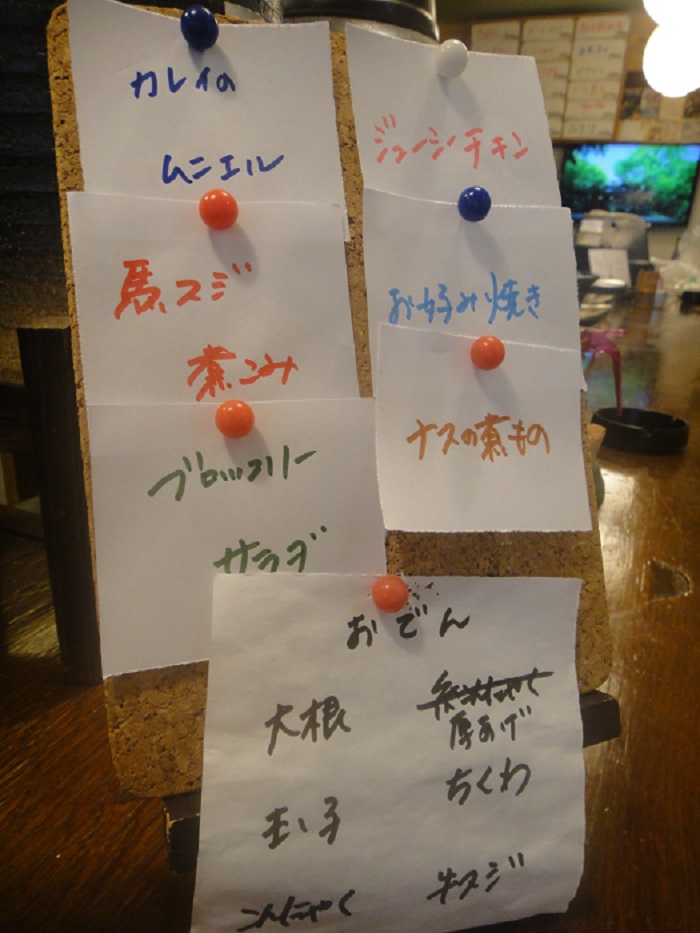 カレイの
ムニエル
ジューシーチキン
馬スジ
煮こみ
お好み焼き
ナスの煮もの
ブロッコリー
サラダ
おでん
大根
玉子
こんにゃく
厚あげ
ちくわ
牛スジ